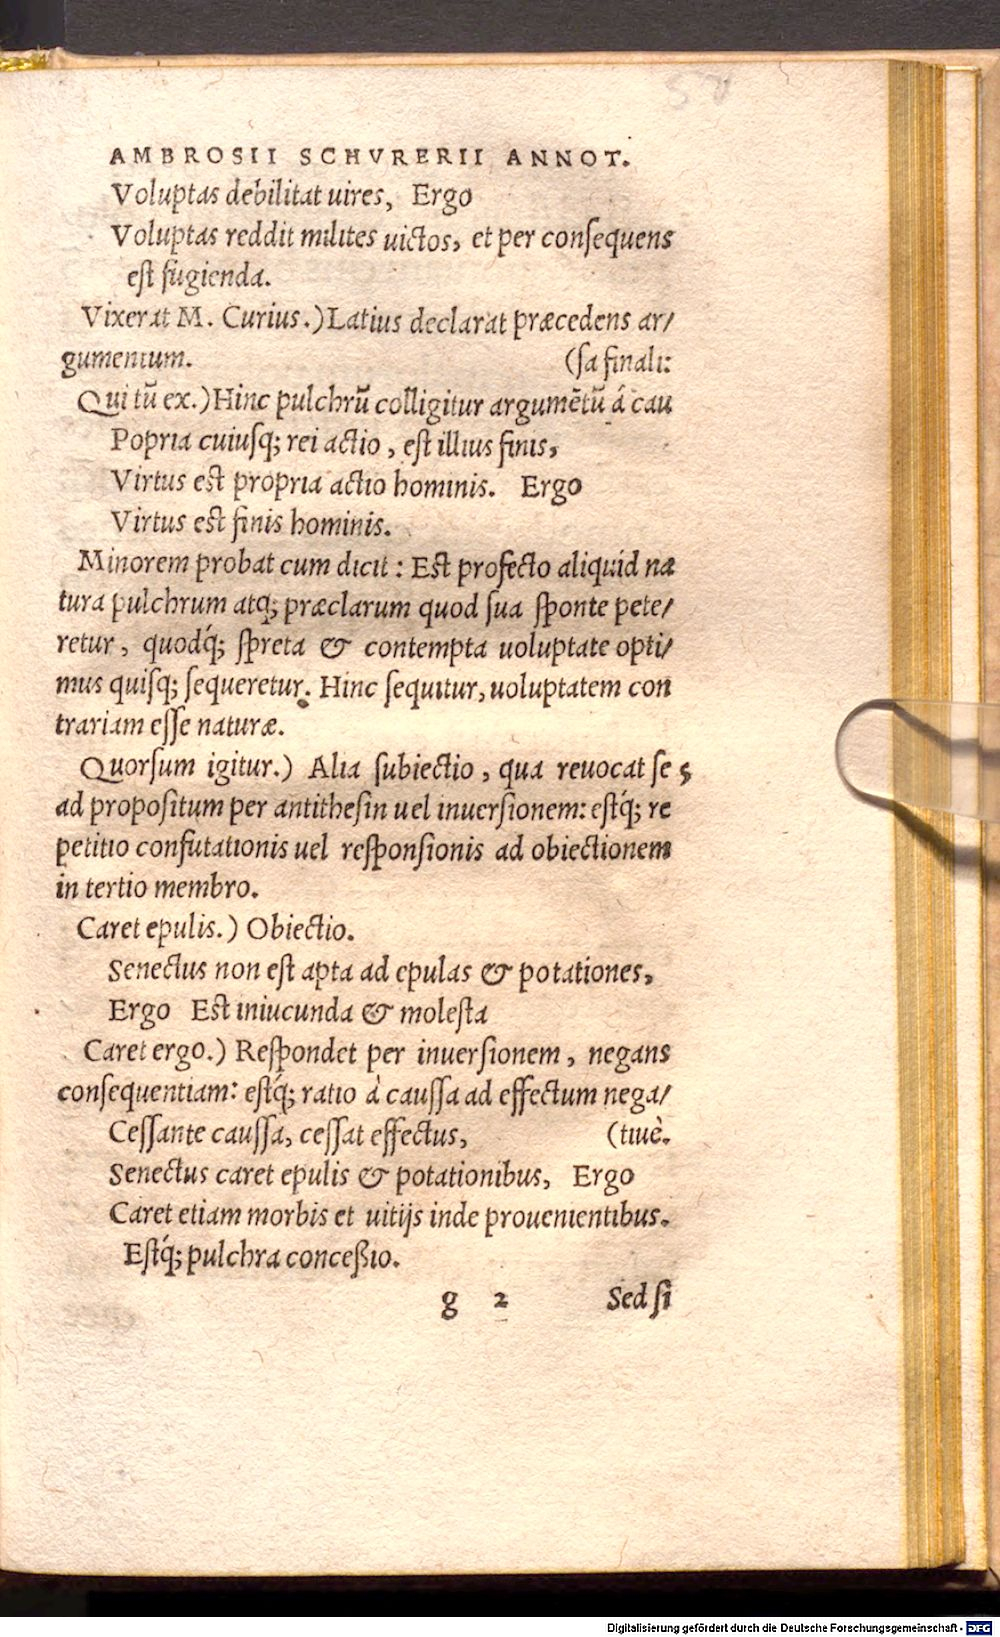 AMBROSII SCHVRERII ANNOT.
Voluptas debilitat uires, Ergo
Voluptas reddit milites uictos, et per conſequens
eſt fugienda.
Vixerat M. Curius.) Latius declarat præcedens ar/
gumentum. (ſa finali:
Qui tū ex.) Hinc pulchrū colligitur argumētū á cau
Popria cuiuſq; rei actio, eſt illius finis,
Virtus eſt propria actio hominis. Ergo
Virtus eſt finis hominis.
Minorem probat cum dicit: Eſt profecto aliquid na
tura pulchrum atq; præclarum quod ſua ſponte pete/
retur, quodq́; ſpreta & contempta uoluptate opti/
mus quiſq; ſequeretur. Hinc ſequitur, uoluptatem con
trariam eſſe naturæ.
Quorſum igitur.) Alia ſubiectio, qua reuocat ſe s
ad propoſitum per antitheſin uel inuerſionem: eſtq́; re
petitio confutationis uel reſponſionis ad obiectionem
in tertio membro.
Caret epulis.) Obiectio.
Senectus non eſt apta ad epulas & potationes,
Ergo Eſt iniucunda & moleſta
Caret ergo.) Reſpondet per inuerſionem, negans
conſequentiam: eſtq́; ratio à cauſſa ad effectum nega/
Ceſſante cauſſa, ceſſat effectus, (tiuè.
Senectus caret epulis & potationibus, Ergo
Caret etiam morbis et uitijs inde prouenientibus.
Eſtq́; pulchra conceßio.
g 2 Sed ſi
Digitalisierung gefördert durch die Deutsche Forschungsgemeinschaft - DFG